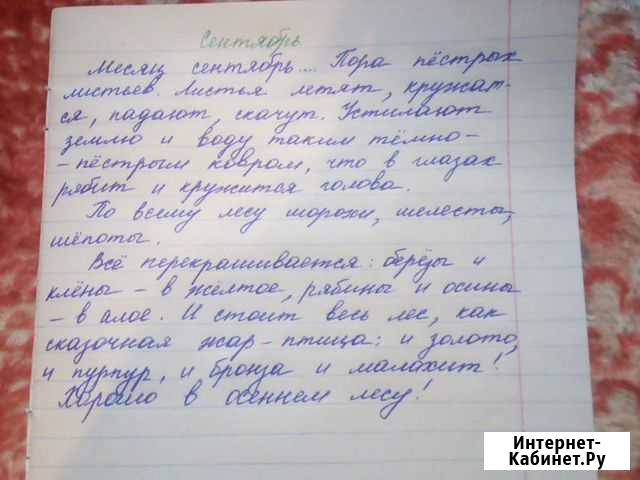 Сентябрь
Месяц сентябрь.... Пора пёстрых
листьев. Листья летят, кружат-
ся, падают, скачут. Устилают
землю и воду таким тёмно-
-пёстрым ковром, что в глазах
рябит и кружится голова.
По всему лесу шорохи, шелесты,
шёпоты.
Всё перекрашивается: берёзы и
клёны - в жёлтое, рябины и осины
- в алое. И стоит весь лес, как
сказочная жар-птица: и золото,
и пурпур, и бронза и малахит!
Хорошо в осеннем лесу!
Интернет-
Кабинет.Ру